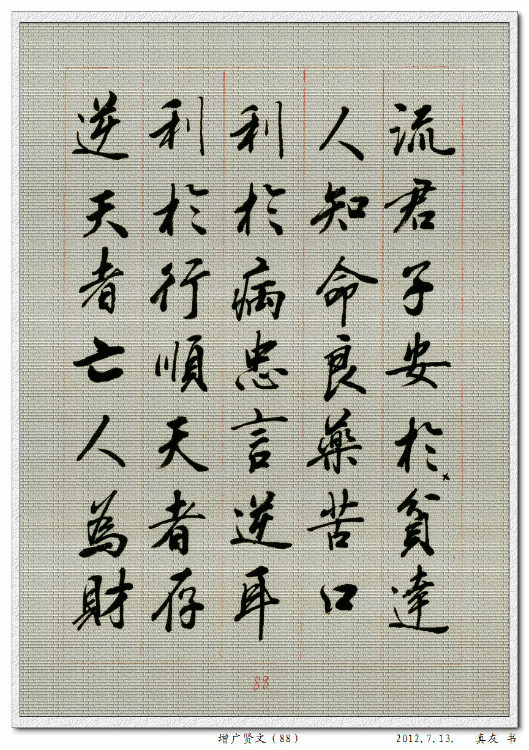 流君子安於貧達
人知命良藥苦口
利於病忠言逆耳
利於行順天者存
逆天者亡人為財
88
增广贤文（88）
2012.7.13. 真友 书